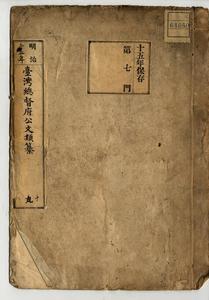 明治
年
臺灣總督府公文類纂
十
九
十五年保存
第七門